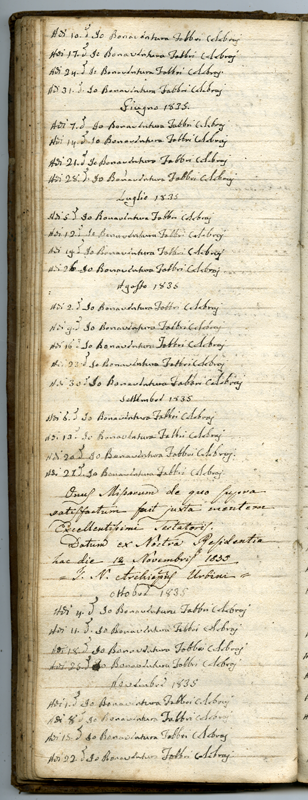 Adi 10. d.º Io Bonaventura Fabbri Celebraj
Adi 17. d.º Io Bonaventura Fabbri Celebraj
Adi 24. d.º Io Bonaventura Fabbri Celebraj
Adi 31. d.º Io Bonaventura Fabbri Celebraj
Giugno 1835
Adi 7. d.º Io Bonaventura Fabbri Celebraj
Adi 14. d.º Io Bonaventura Fabbri Celebraj
Adi 21. d.º Io Bonaventura Fabbri Celebraj
Adi 28. d.º Io Bonaventura Fabbri Celebraj
Luglio 1835
Adi 5. d.º Io Bonaventura Fabbri Celebraj
Adi 12. d.º Io Bonaventura Fabbri Celebraj
Adi 19. d.º Io Bonaventura Fabbri Celebraj
Adi 26 Io Bonaventura Fabbri Celebraj
Agosto 1835
Adi 2. d.º Io Bonaventura Fabbri Celebraj
Adi 9. d.º Io Bonaventura Fabbri Celebraj
Adi 16. d.º Io Bonaventura Fabbri Celebraj
Adi 22 d.º Io Bonaventura Fabbri Celebraj
Adi 30 d.º Io Bonaventura Fabbri Celebraj
Settembre 1835
Adi 6. d.º Io Bonaventura Fabbri Celebraj
Adi 13. d.º Io Bonaventura Fabbri Celebraj
Adi 20. d.º Io Bonaventura Fabbri Celebraj
Adi 27. d.º Io Bonaventura Fabbri Celebraj
Onus Missarum de quo supra
satisfactum fuit juxta mentem
Excellentissimi Testatoris.
Datum ex Nostra Residentia
hac die 12 Novembris 1835
= I. N. Archiepũs Urbini =
Ottobre 1835
Adi 4. d.º Io Bonaventura Fabbri Celebraj
Adi 11. d.º Io Bonaventura Fabbri Celebraj
Adi 18. d.º Io Bonaventura Fabbri Celebraj
Adi 25 d.º Io Bonaventura Fabbri Celebraj
Novembre 1835
Adi 1. d.º Io Bonaventura Fabbri Celebraj
Adi 8. d.º Io Bonaventura Fabbri Celebraj
Adi 15. d.º Io Bonaventura Fabbri Celebraj
Adi 22. d.º Io Bonaventura Fabbri Celebraj